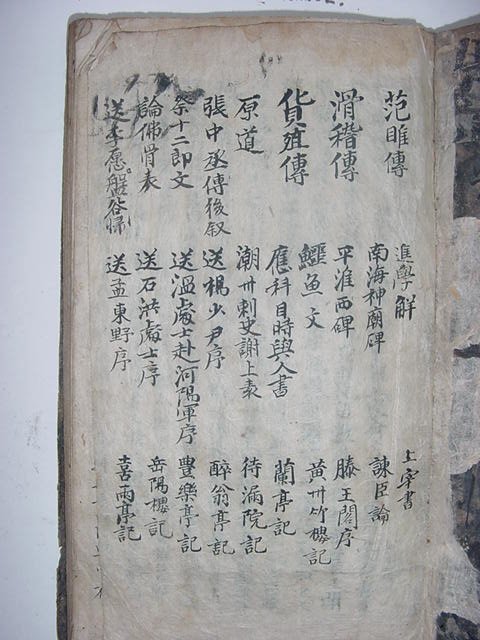 范睢傳
滑稽傳
貨殖傳
原道
張中丞傳後叙
祭十二郎文
論佛骨表
送李愿盤谷歸
進學解
南海神廟碑
平淮西碑
鱷魚文
應科目時與人書
潮州刺史謝上表
送楊少尹序
送溫處士赴河陽軍序
送石洪處士序
送孟東野序
上宰書
諫臣論
滕王閣序
黃州竹樓記
蘭亭記
待漏院記
醉翁亭記
豐樂亭記
岳陽樓記
喜雨亭記